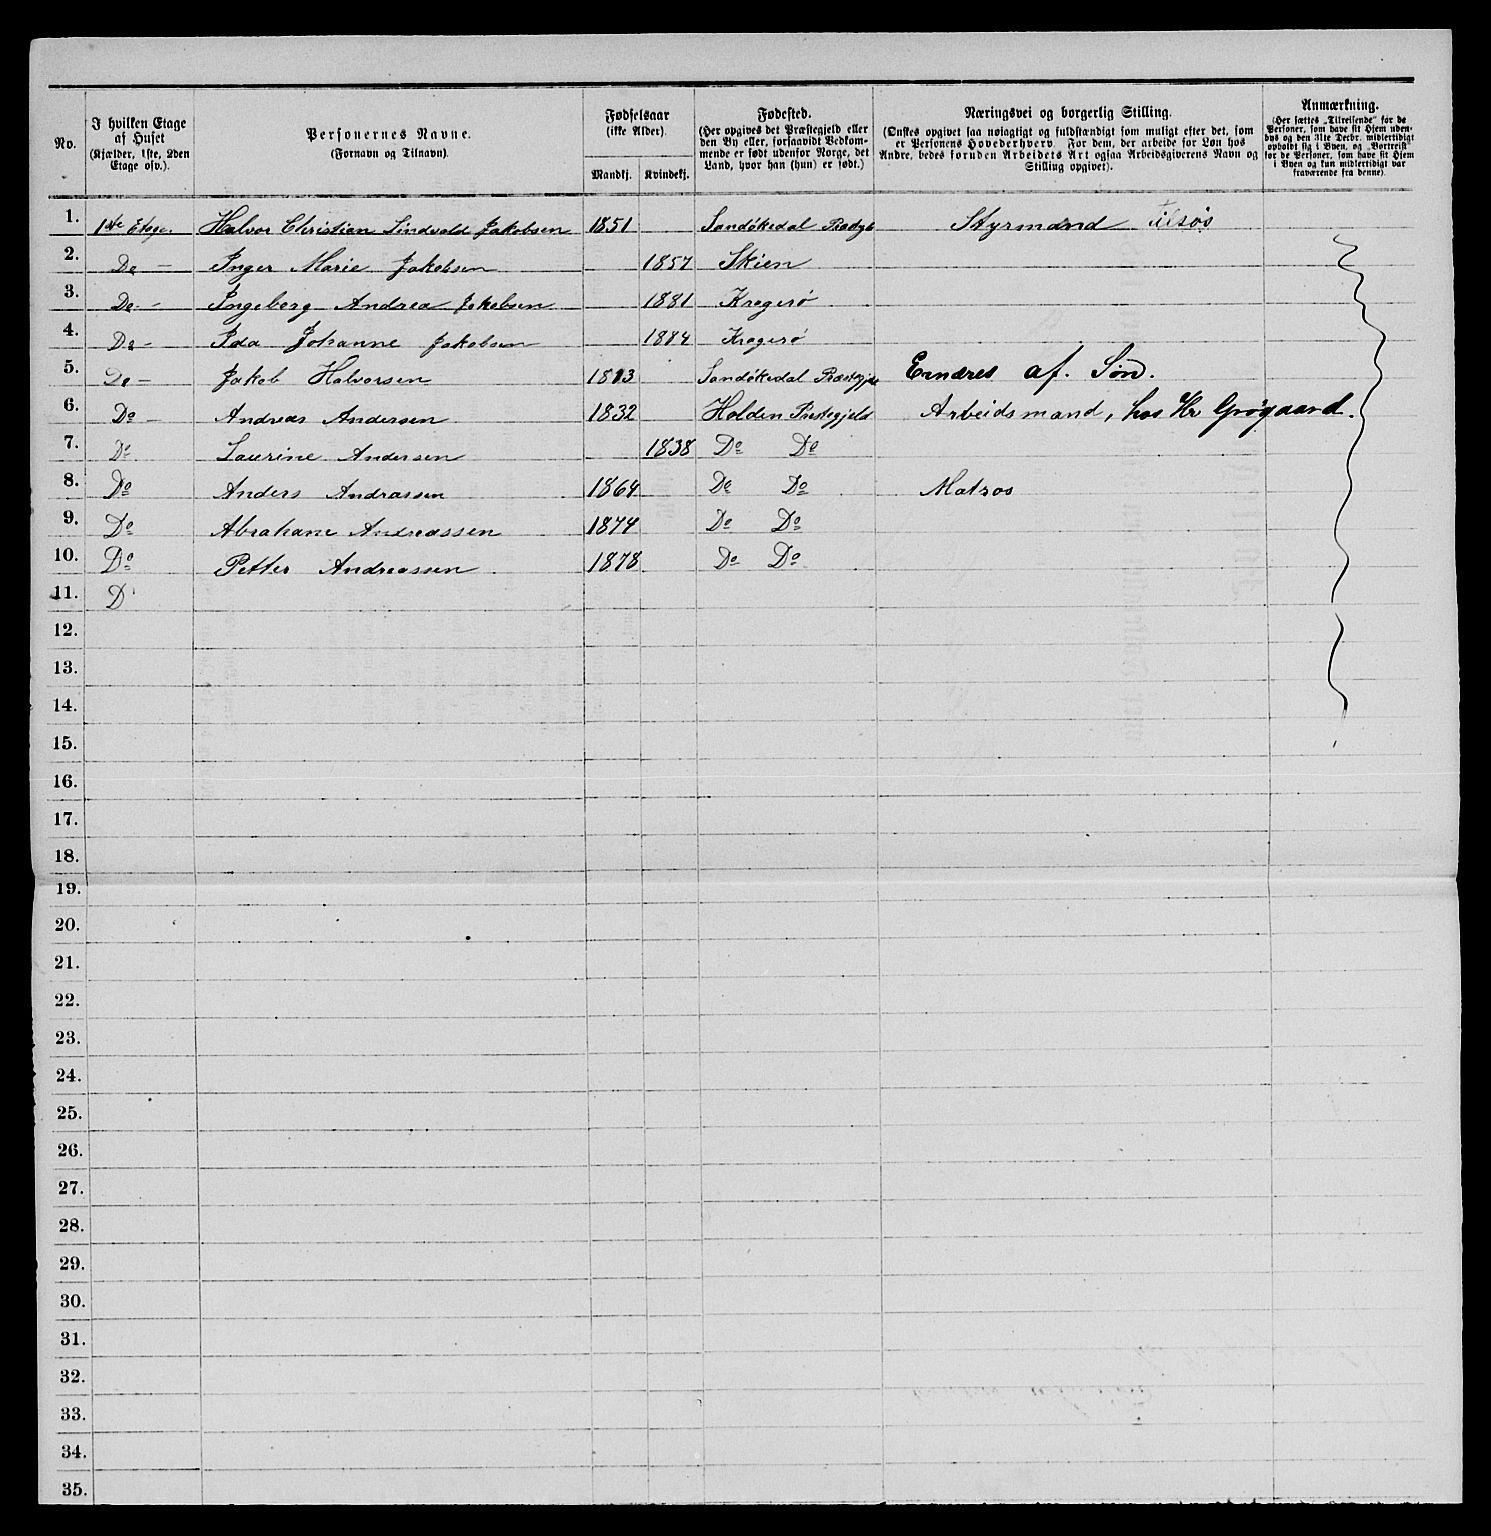 No. | I hvilken Etage af Huset (Kjælder, 1ste, 2den Etage osv.). | Personernes Navne. (Fornavn og Tilnavn). | Fødselsaar (ikke Alder). Mandkj. | Kvindekj. | Fødested. (Her opgives det Præstegjeld eller den By eller, forsaavidt Vedkommende er født udenfor Norge, det Land, hvor han (hun) er født.) | Næringsvei og borgerlig Stilling. (Ønskes opgivet saa nøiagtigt og fuldstændigt som muligt efter det, som er Personens Hovederhverv. For dem, der arbeide for Løn hos Andre, bedes foruden Arbeidets Art ogsaa Arbeidsgiverens Navn og Stilling opgivet). | Anmærkning. (Her sættes „Tilreisende“ for de Personer, som have sit Hjem udenbys og den 31te Decbr. midlertidigt opholdt sig i Byen, og „Bortreist“ for de Personer, som have sit Hjem i Byen og kun midlertidigt var fraværende fra denne).
1. 1ste Etage. Halvor Christian Lindvald Jakobsen 1851 Sandøkedal Styrmand tilsøs
2. Do – Inger Marie Jakobsen 1857 Skien
3. Do – Ingeborg Andrea Jakobsen 1881 Kragerø
4. Do – Ida Johanne Jakobsen 1884 Kragerø
5. Do – Jakob Halvorsen 1813 Sandøkedal Ernæres af. Søn.
6. Do – Andreas Andersen 1832 Holden Arbeidsmand, hos Hr Grøgaard.
7. Do Laurine Andersen 1838 Do Do
8. Do Anders Andrassen 1864 Do Do Matros
9. Do Abrahane Andreassen 1874 Do Do
10. Do Petter Andreassen 1878 Do Do
11. D
12.
13.
14.
15.
16.
17.
18.
19.
20.
21.
22.
23.
24.
25.
26.
27.
28.
29.
30.
31.
32.
33.
34.
35.